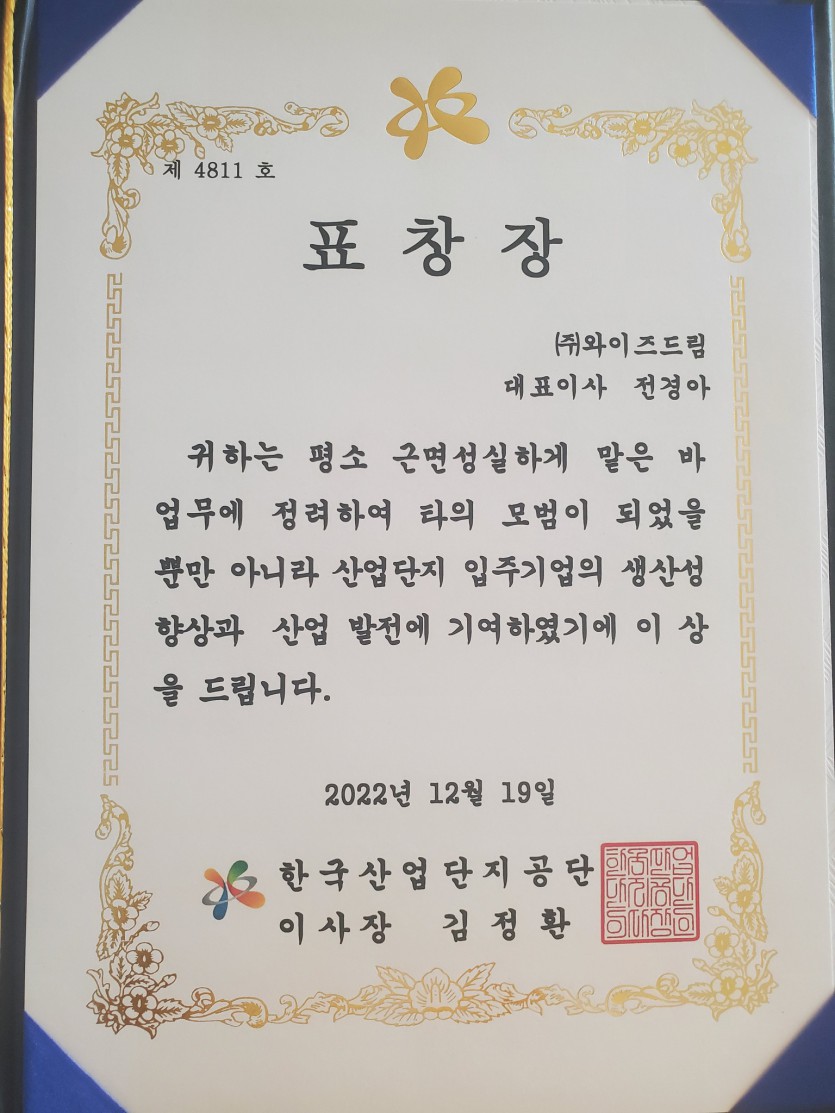 제 4811 호
표 창 장
㈜와이즈드림
대표이사 전경아
귀하는 평소 근면성실하게 맡은 바
업무에 정려하여 타의 모범이 되었을
뿐만 아니라 산업단지 입주기업의 생산성
향상과 산업 발전에 기여하였기에 이 상
을 드립니다.
2022년 12월 19일
한국산업단지공단
이사장 김정환